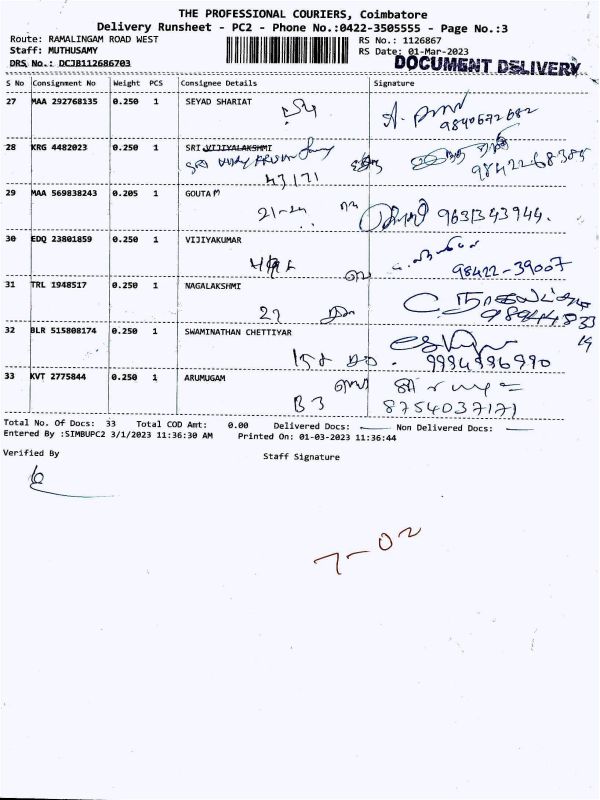 THE PROFESSIONAL COURIERS, Coimbatore
Delivery Runsheet - PC2 - Phone No.:0422-3505555 - Page No.:3
Route: RAMALINGAM ROAD WEST
RS No.: 1126867
Staff: MUTHUSAMY
RS Date: 01-Mar-2023
DRS No.: DCJB112686703
DOCUMENT DELIVERY
S No Consignment No Weight PCS Consignee Details Signature
27 MAA 292768135 0.250 1 SEYAD SHARIAT
9840672682
28 KRG 4482023 0.250 1 SRI VIJIYALAKSHMI
43/71
29 MAA 569838243 0.205 1 GOUTAM
21-24 9631343944.
30 EDQ 23801859 0.250 1 VIJIYAKUMAR
98422-39007
31 TRL 1948517 0.250 1 NAGALAKSHMI
27
32 BLR 515808174 0.250 1 SWAMINATHAN CHETTIYAR
9994996990
33 KVT 2775844 0.250 1 ARUMUGAM
B 3 8754037171
Total No. Of Docs: 33 Total COD Amt: 0.00 Delivered Docs: Non Delivered Docs:
Entered By :SIMBUPC2 3/1/2023 11:36:30 AM Printed On: 01-03-2023 11:36:44
Verified By Staff Signature
7-02